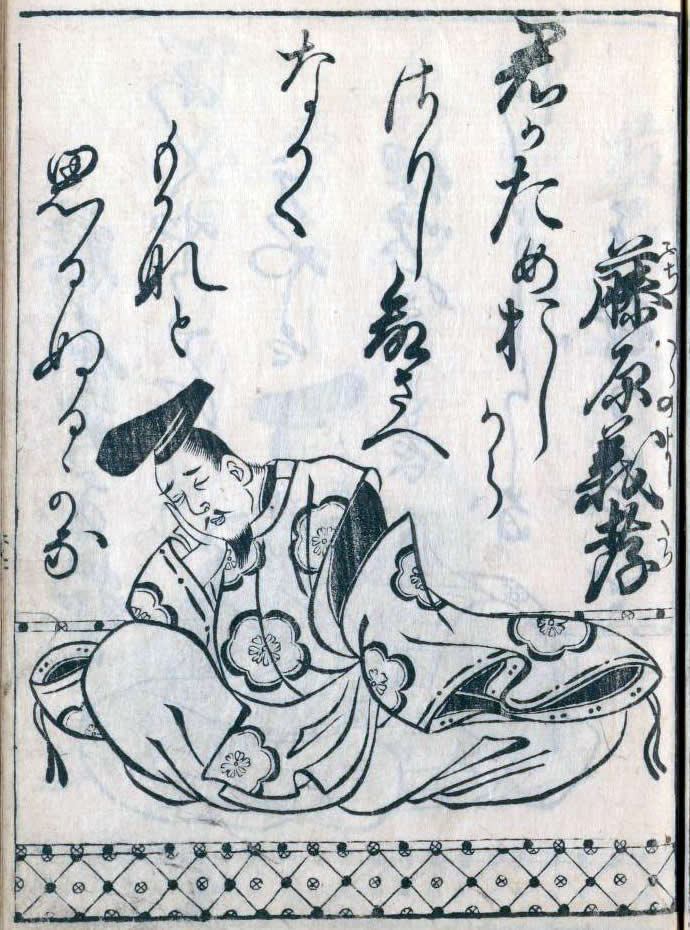 藤原義孝
ふぢはらのよしたか
君かためおしから
さりし命さへ
なかく
もかなと
思ひぬるかな